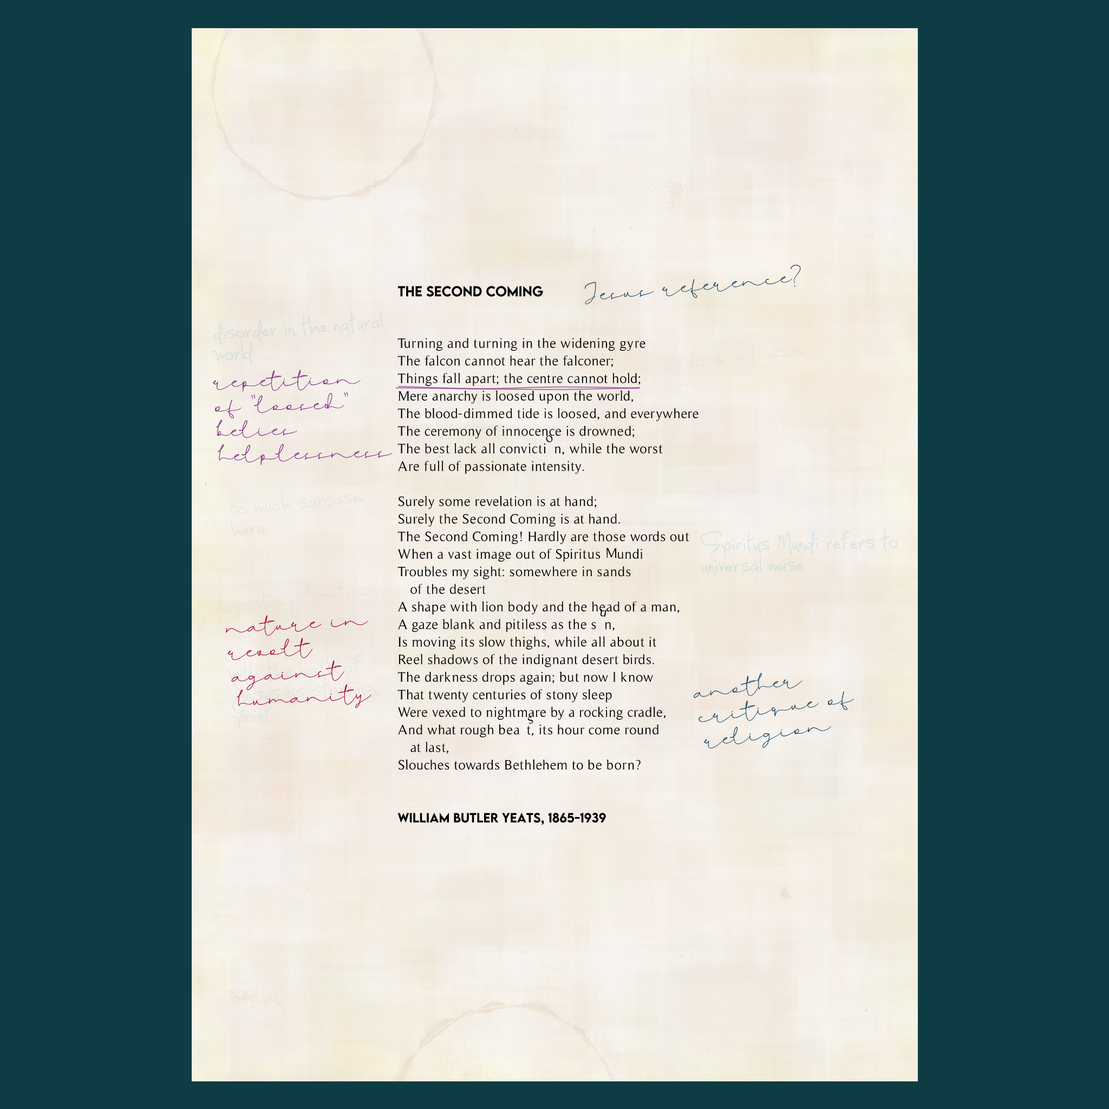 THE SECOND COMING
Jesus reference?
disorder in the natural
world
repetition
of "loosed"
belies
helplessness
Turning and turning in the widening gyre
The falcon cannot hear the falconer;
Things fall apart; the centre cannot hold;
Mere anarchy is loosed upon the world,
The blood-dimmed tide is loosed, and everywhere
The ceremony of innocence is drowned;
The best lack all conviction, while the worst
Are full of passionate intensity.
so much sarcasm
here
Surely some revelation is at hand;
Surely the Second Coming is at hand.
The Second Coming! Hardly are those words out
When a vast image out of Spiritus Mundi
Troubles my sight: somewhere in sands
of the desert
A shape with lion body and the head of a man,
A gaze blank and pitiless as the sun,
Is moving its slow thighs, while all about it
Reel shadows of the indignant desert birds.
The darkness drops again; but now I know
That twenty centuries of stony sleep
Were vexed to nightmare by a rocking cradle,
And what rough beast, its hour come round
at last,
Slouches towards Bethlehem to be born?
Spiritus Mundi refers to
universal muse
nature in
revolt
against
humanity
point
another
critique of
religion
WILLIAM BUTLER YEATS, 1865-1939